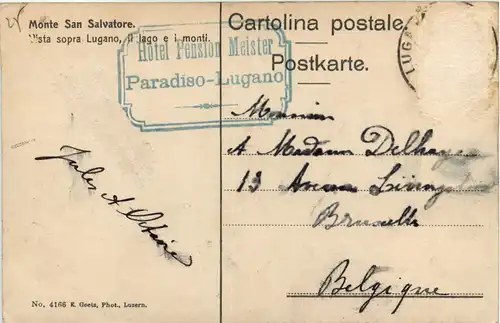 Monte San Salvatore.
Vista sopra Lugano, il lago e i monti.
Cartolina postale.
Postkarte.
Hôtel Pension Meister
Paradiso-Lugano
LUGA
Monsieur
A Madame Delhaye
13 Avenue
Bruxelles
Belgique
Jules
No. 4166 E. Goetz, Phot., Luzern.